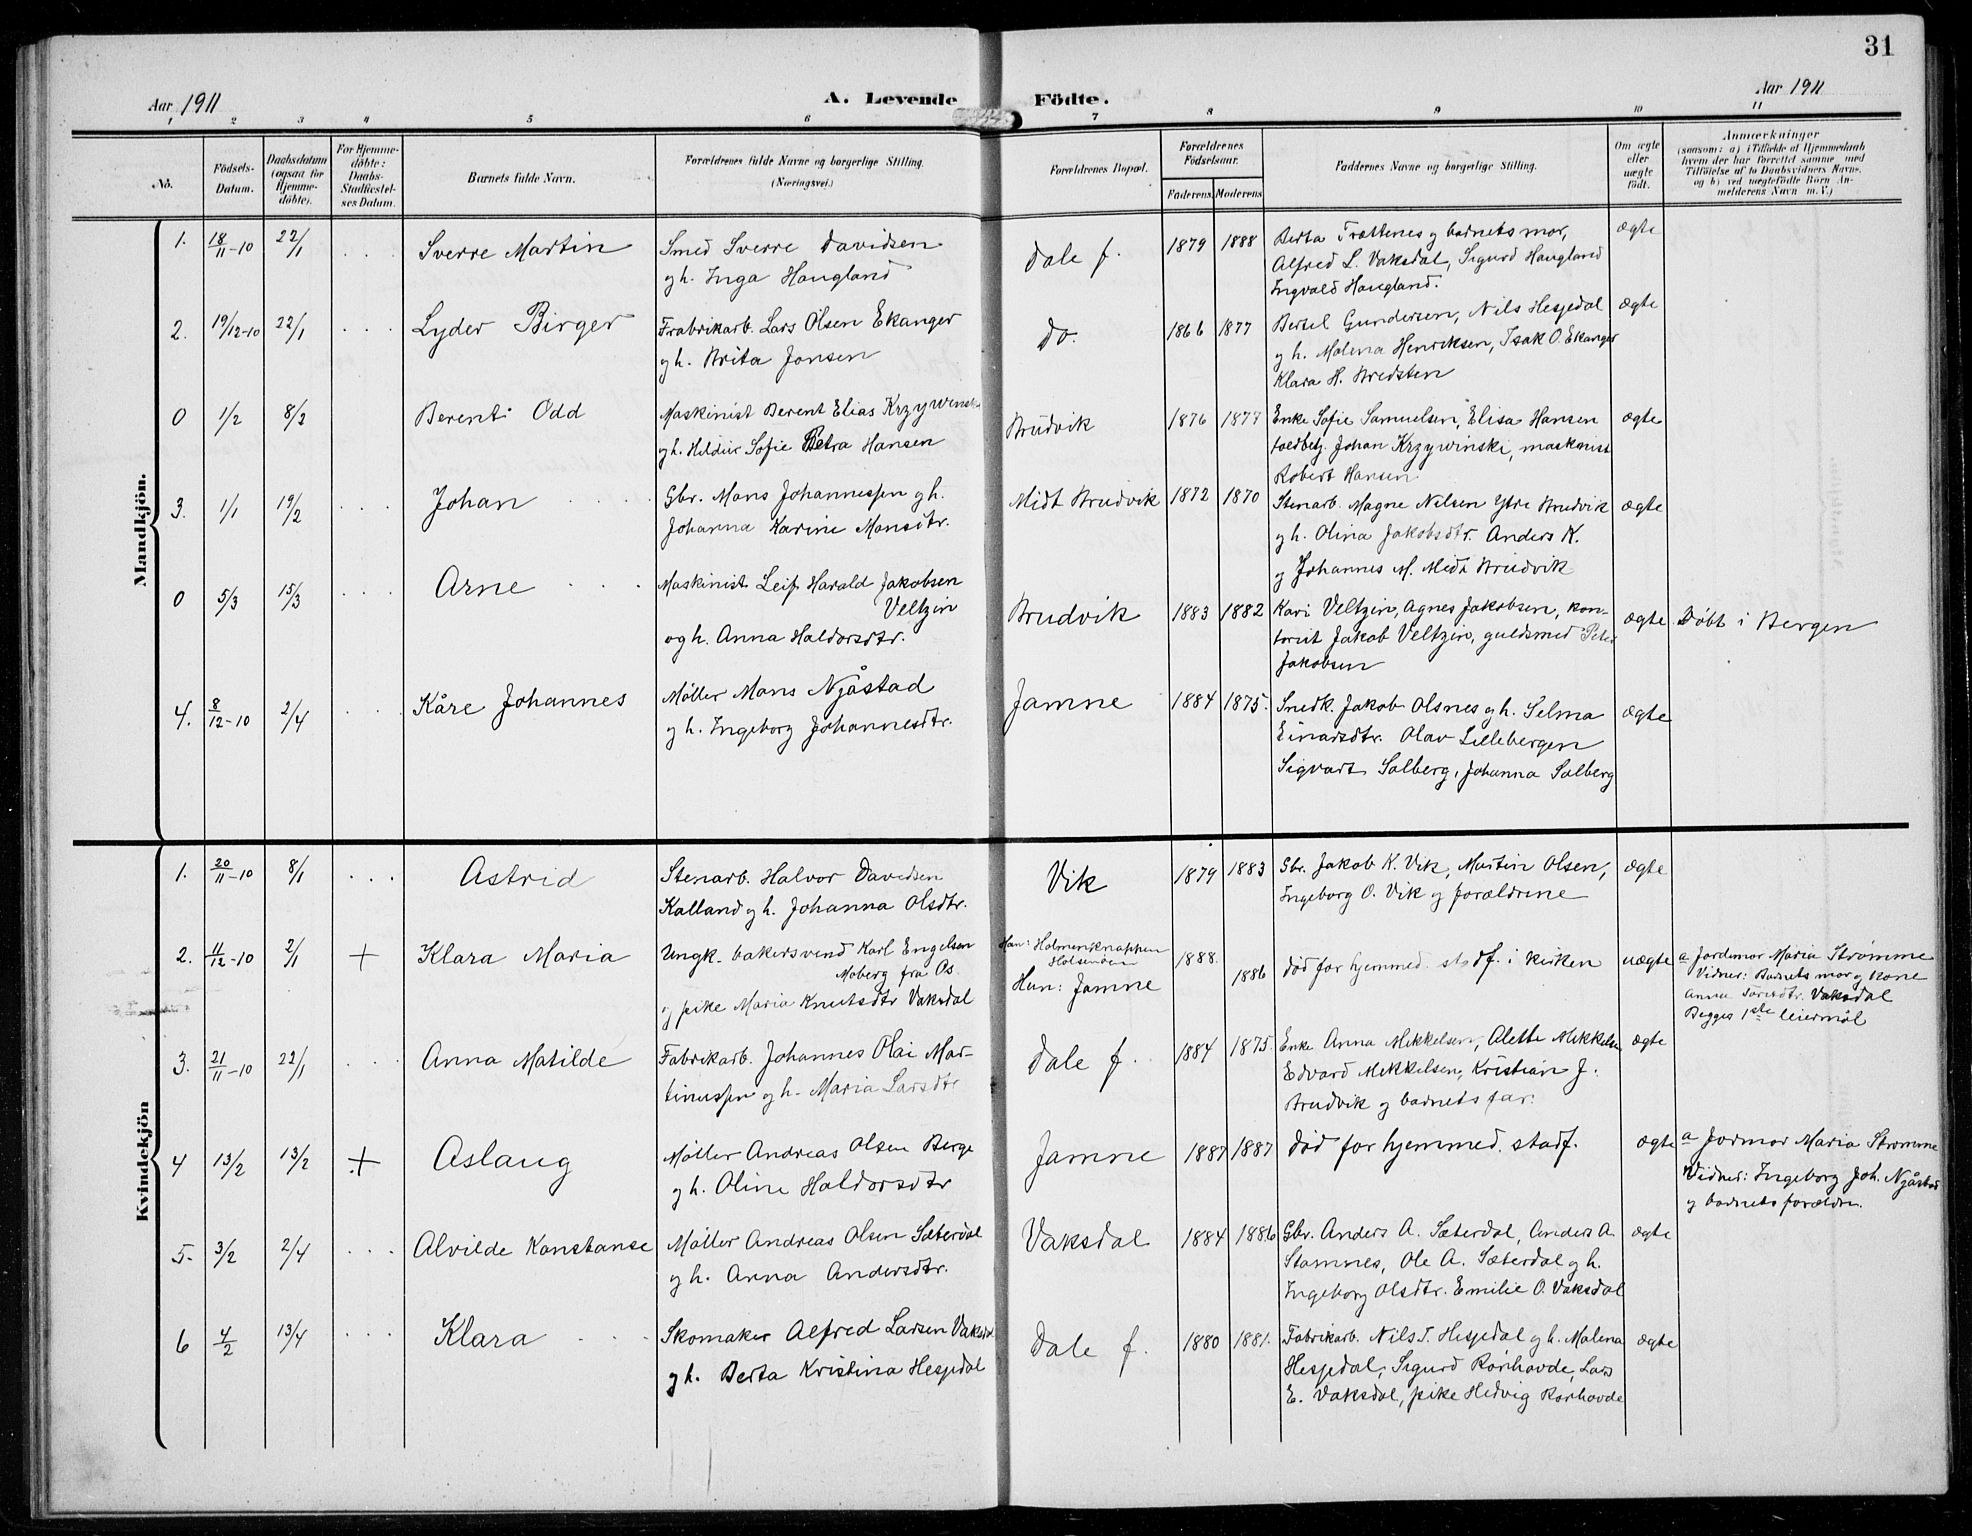 31
Aar 1911
A. Levende Födte.
Aar 1911
1 2 3 4 5 6 7 8 9 10 11
No.
Födsels-Datum.
Daabsdatum (ogsaa for Hjemme-döbte).
For Hjemme-döbte: Daabs-Stadfæstel-ses Datum.
Barnets fulde Navn.
Forældrenes fulde Navne og borgerlige Stilling.
(Næringsvei.)
Forældrenes Bopæl.
Forældrenes Födselsaar.
Faderens Moderens
Faddernes Navne og borgerlige Stilling.
Om ægte eller uægte födt.
Anmærkninger
(saasom: a) i Tilfælde af Hjemmedaab
hvem der har forrettet samme med
Tilföielse af to Daabsvidners Navne.
og b) ved uægtefödte Börn An-
melderens Navn m. V.)
Mandkjön.
1. 18/11-10 22/1 . . . Sverre Martin
Smed Sverre Davidsen
og h. Inga Haugland
Dale f. 1879 1888
Berta Trættenes og barnets mor,
Alfred L. Vaksdal, Sigurd Haugland
Ingvald Haugland.
ægte
2. 19/12-10 22/1 . . . Lyder Birger
Frabrikarb. Lars Olsen Ekanger
og h. Brita Jonsen
Do. 1866 1877
Bertel Gundersen, Nils Hespedal
og h. Malena Henriksen, Isak O. Ekanger
Klara H. Bredsten
ægte
0 1/2 8/3 Berent Odd
Maskinist Berent Elias Krzywinski
og h. Hildur Sofie Petra Hansen
Brudvik 1876 1877
Enke Sofie Samuelsen, Elisa Hansen
toldbetj. Johan Krzywinski, maskinist
Robert Hansen
ægte
3. 1/1 19/2 . . . Johan . . . .
Gbr. Mons Johannessen og h.
Johanna Karine Monsdtr.
Midt Brudvik 1872 1870
Stenarb. Magne Nilsen Ytre Brudvik
og h. Olina Jakobsdtr. Anders K.
og Johannes M. Midt Brudvik
ægte
0 5/3 15/3 . . . Arne . . . .
Maskinist Leif Harald Jakobsen
Veltzin
og h. Anna Haldorsdtr.
Brudvik 1883 1882
Kari Veltzin, Agnes Jakobsen, kon-
torist Jakob Veltzin, guldsmed Peter
Jakobsen
ægte Döbt i Bergen
4. 8/12-10 2/4 . . . Kåre Johannes
Möller Mons Njåstad
og h. Ingeborg Johannesdtr.
Jamne 1884 1875.
Snedk. Jakob Olsnes og h. Selma
Einarsdtr. Olav Lillebergen
Sigvart Solberg, Johanna Solberg
ægte
Kvindekjön
1. 20/11-10 8/1 . . . Astrid
Stenarb. Halvor Davidsen
Kalland og h. Johanna Olsdtr.
Vik 1879 1883
Gbr. Jakob K. Vik, Martin Olsen,
Ingeborg O. Vik og forældrene
ægte
2. 11/12-10 2/1 + Klara Maria
Ungk. bakersvend Karl Engelsen
Moberg fra Os.
og pike Maria Knutsdtr Vaksdal
Han: Holmenknappen
Holsenöen
Hun: Jamne
1888. 1886
död før hjemmed. stadf. i kirken
uægte
a Jordmor Maria Strømme
Vidner: Barnets mor og kone
Anna Vaksdal
Begges 1ste leiermål
3. 21/11-10 22/1 . . . Anna Matilde
Fabrikarb. Johannes Olai Mar-
tinussen og h. Maria Larsdtr
Dale f. 1884 1875.
Enke Anna Mikkelsen, Alette Mikkelsen
Edvard Mikkelsen, Kristian J.
Brudvik og barnets far.
ægte
4 13/2 13/2 + Aslaug
Möller Andreas Olsen Berge
og h. Oline Haldorsdtr
Jamne 1887 1887
död før hjemmed. stadf.
ægte
a Jormor Maria Strømme
Vidner: Ingeborg Joh. Njåstad
og barnets forældre.
5. 3/2 2/4 . . . Alvilde Konstanse
Möller Andreas Olsen Sæterdal
og h. Anna Andersdtr.
Vaksdal 1884 1886
Gbr. Anders A. Sæterdal, Anders A.
Stamnes, Ole A. Sæterdal og h.
Ingeborg Olsdtr. Emilie O. Vaksdal
ægte
6 4/2 13/4 . . . Klara . . .
Skomaker Alfred Larsen Vaksdal
og h. Berta Kristina Hespedal
Dale f. 1880 1881.
Fabrikarb. Nils I. Hespedal og h. Malena
Hespedal, Sigurd Rörhovde, Lars
E. Vaksdal, pike Hedvig Rörhovde
ægte